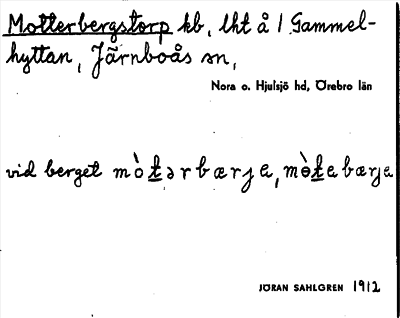 Motterbergstorp kb, lht å 1 Gammel-
hyttan, Järnboås sn,
Nora o. Hjulsjö hd, Örebro län
vid berget mòtərbærja, mòtebærja
JÖRAN SAHLGREN 1912